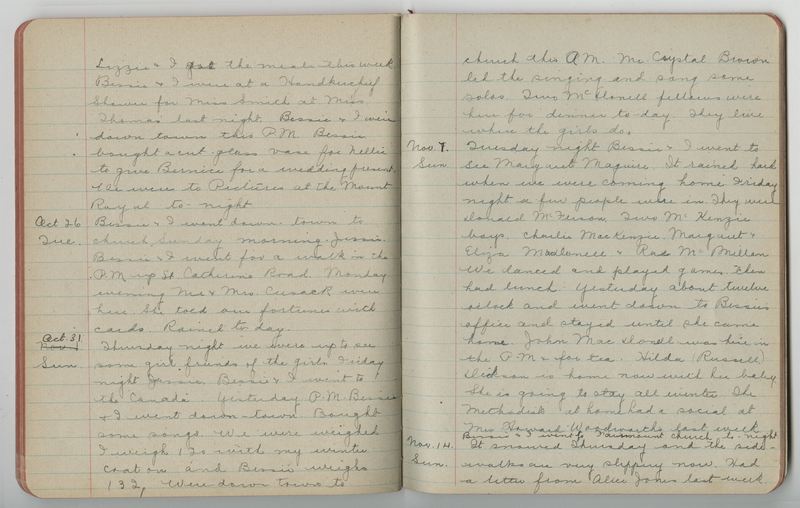 Lizzie & I got the meals this week
Bessie & I were at a Handkerchief
Shower for Miss Smith at Miss
Thomas' last night. Bessie & I were
down town this P.M. Bessie
bought a cut glass vase for Nellie
to give Bernice for a wedding present.
We were to Pictures at the Mount
Royal to-night
Oct 26 Bessie & I went down town to
Tue. church Sunday morning. Jessie,
Bessie & I went for a walk in the
P.M. up St Catherine Road. Monday
evening Mr & Mrs. Cusack were
here. She told our fortunes with
cards. Rained to-day.
Oct. 31
Nov. 1 Thursday night we were up to see
Sun. some girl friends of the girls. Friday
night Jessie, Bessie & I went to
the Canada. Yesterday P.M. Bessie
& I went down-town. Bought
some songs. We were weighed
I weigh 120 with my winter
coat on and Bessie weighs
132, Were down town to
church this A.M. Mr. Crystal Brown
led the singing and sang some
solos. Two McDonell fellows were
here for dinner to-day. They live
where the girls do.
Nov. 7. Tuesday night Bessie & I went to
Sun see Margaret Maguire. It rained hard
when we were coming home. Friday
night a few people were in. They were
Donald McPherson, Two McKenzie
boys, Charlie MacKenzie, Margaret &
Eliza MacDonell & Rae McMillan
We danced and played games. Then
had lunch. Yesterday about twelve
oclock and went down to Bessies
office and stayed until she came
home. John MacDonell was here in
the P.M & for tea. Hilda (Russell)
Dickson is home now with her baby
She is going to stay all winter. The
Methodist at home had a social at
Mrs Howard Woodworths last week
Bessie & I went to Fairmount church to-night
Nov. 14. It snowed Thursday and the side-
Sun. walks are very slippery now. Had
a letter from Alice Jones last week.